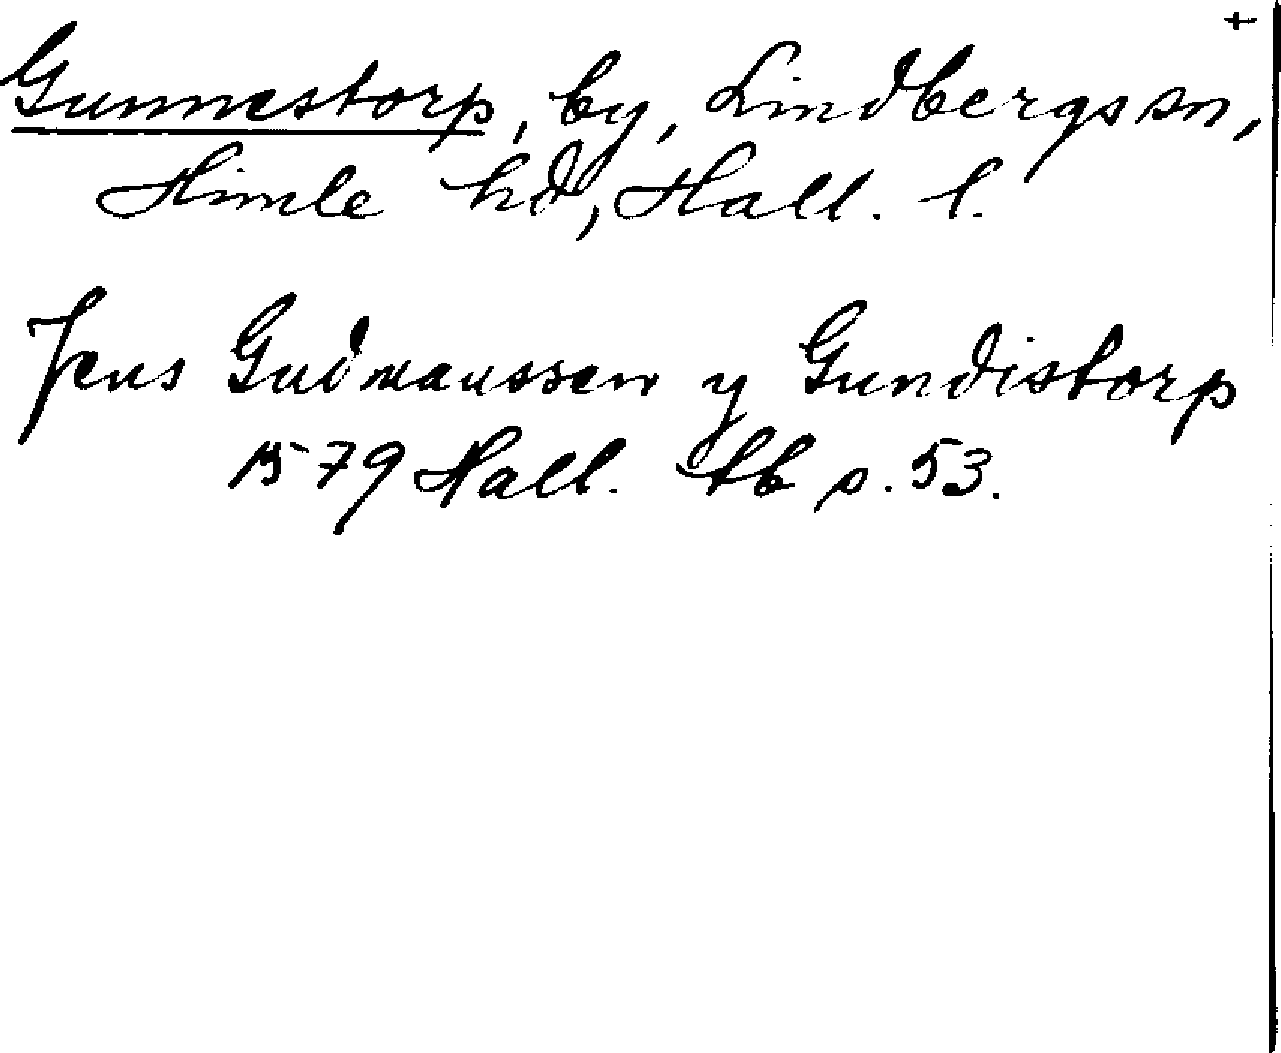 +
Gunnestorp, by, Lindbergs sn,
Himle hd, Hall. l.
Jens Gudmanssen y Gundistorp
1579 Hall. tb s. 53.